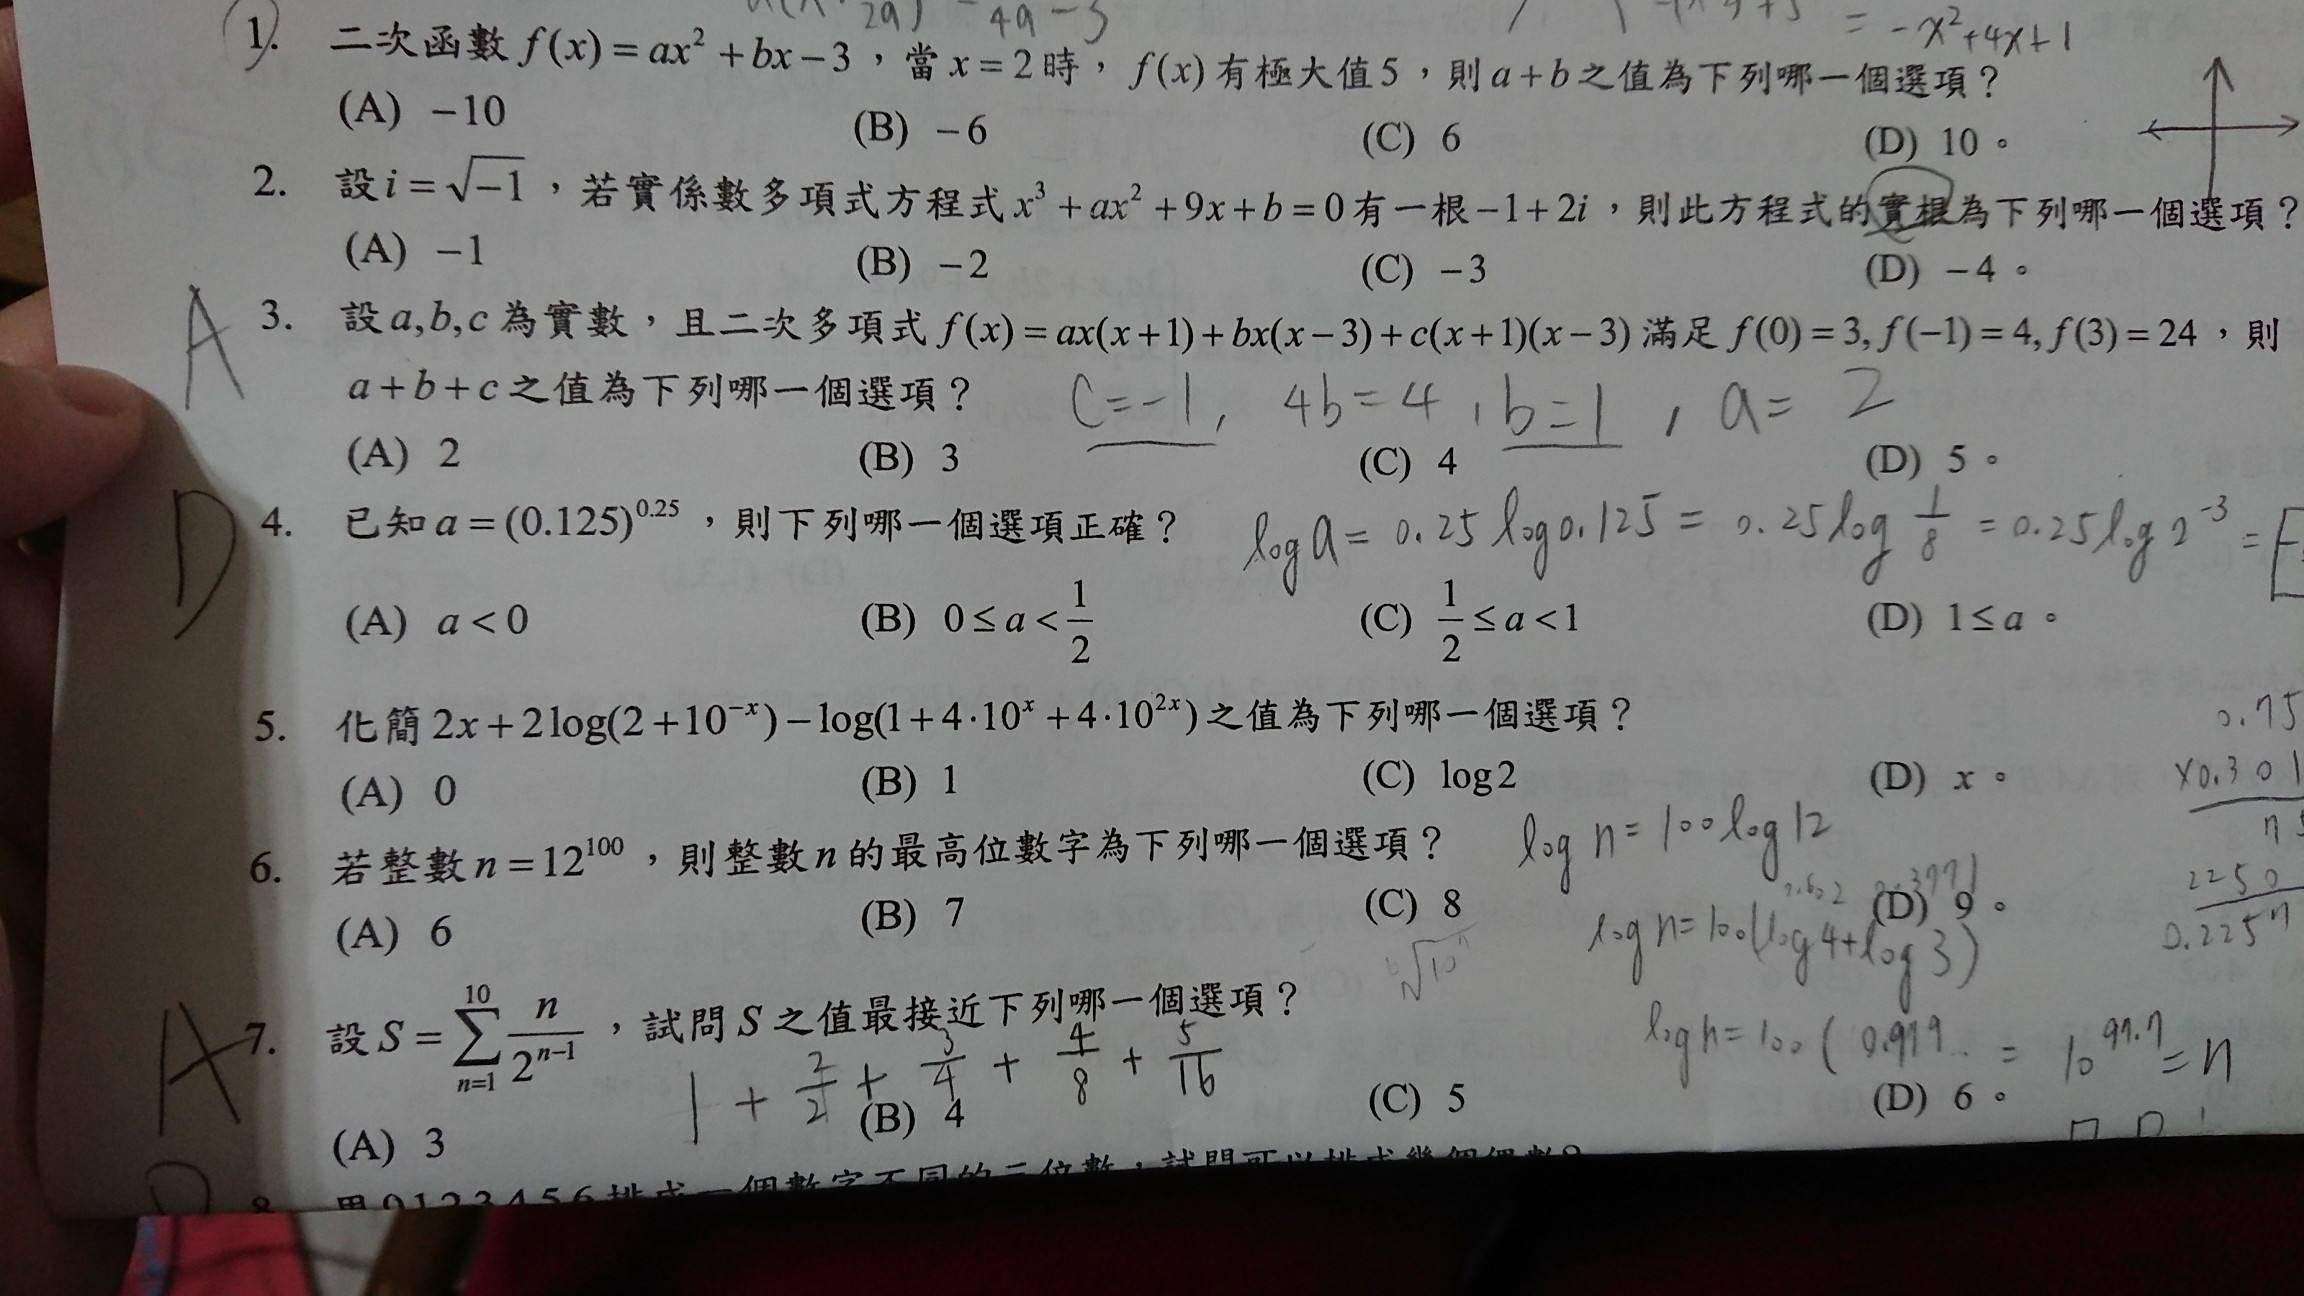 = -x²+4x+1
1. 二次函數 f(x) = ax² + bx − 3，當 x = 2 時，f(x) 有極大值 5，則 a + b 之值為下列哪一個選項？
(A) −10 (B) −6 (C) 6 (D) 10。
2. 設 i = √−1，若實係數多項式方程式 x³ + ax² + 9x + b = 0 有一根 −1 + 2i，則此方程式的實根為下列哪一個選項？
(A) −1 (B) −2 (C) −3 (D) −4。
A
3. 設 a,b,c 為實數，且二次多項式 f(x) = ax(x+1) + bx(x−3) + c(x+1)(x−3) 滿足 f(0) = 3, f(−1) = 4, f(3) = 24，則
a + b + c 之值為下列哪一個選項？ C=-1, 4b=4, b=1, a= 2
(A) 2 (B) 3 (C) 4 (D) 5。
D
4. 已知 a = (0.125)^0.25，則下列哪一個選項正確？ log a = 0.25 log 0.125 = 0.25 log 1/8 = 0.25 log 2^-3 =
(A) a < 0 (B) 0 ≤ a < 1/2 (C) 1/2 ≤ a < 1 (D) 1 ≤ a。
5. 化簡 2x + 2log(2 + 10^−x) − log(1 + 4·10^x + 4·10^2x) 之值為下列哪一個選項？
0.75
(A) 0 (B) 1 (C) log 2 (D) x。
x0.301
6. 若整數 n = 12^100，則整數 n 的最高位數字為下列哪一個選項？ log n = 100 log 12
2250
(A) 6 (B) 7 (C) 8 (D) 9。
log n = 100(log 4 + log 3)
A
7. 設 S = Σ(n=1→10) n/2^(n−1)，試問 S 之值最接近下列哪一個選項？
1 + 2/2 + 3/4 + 4/8 + 5/16
(A) 3 (B) 4 (C) 5 (D) 6。